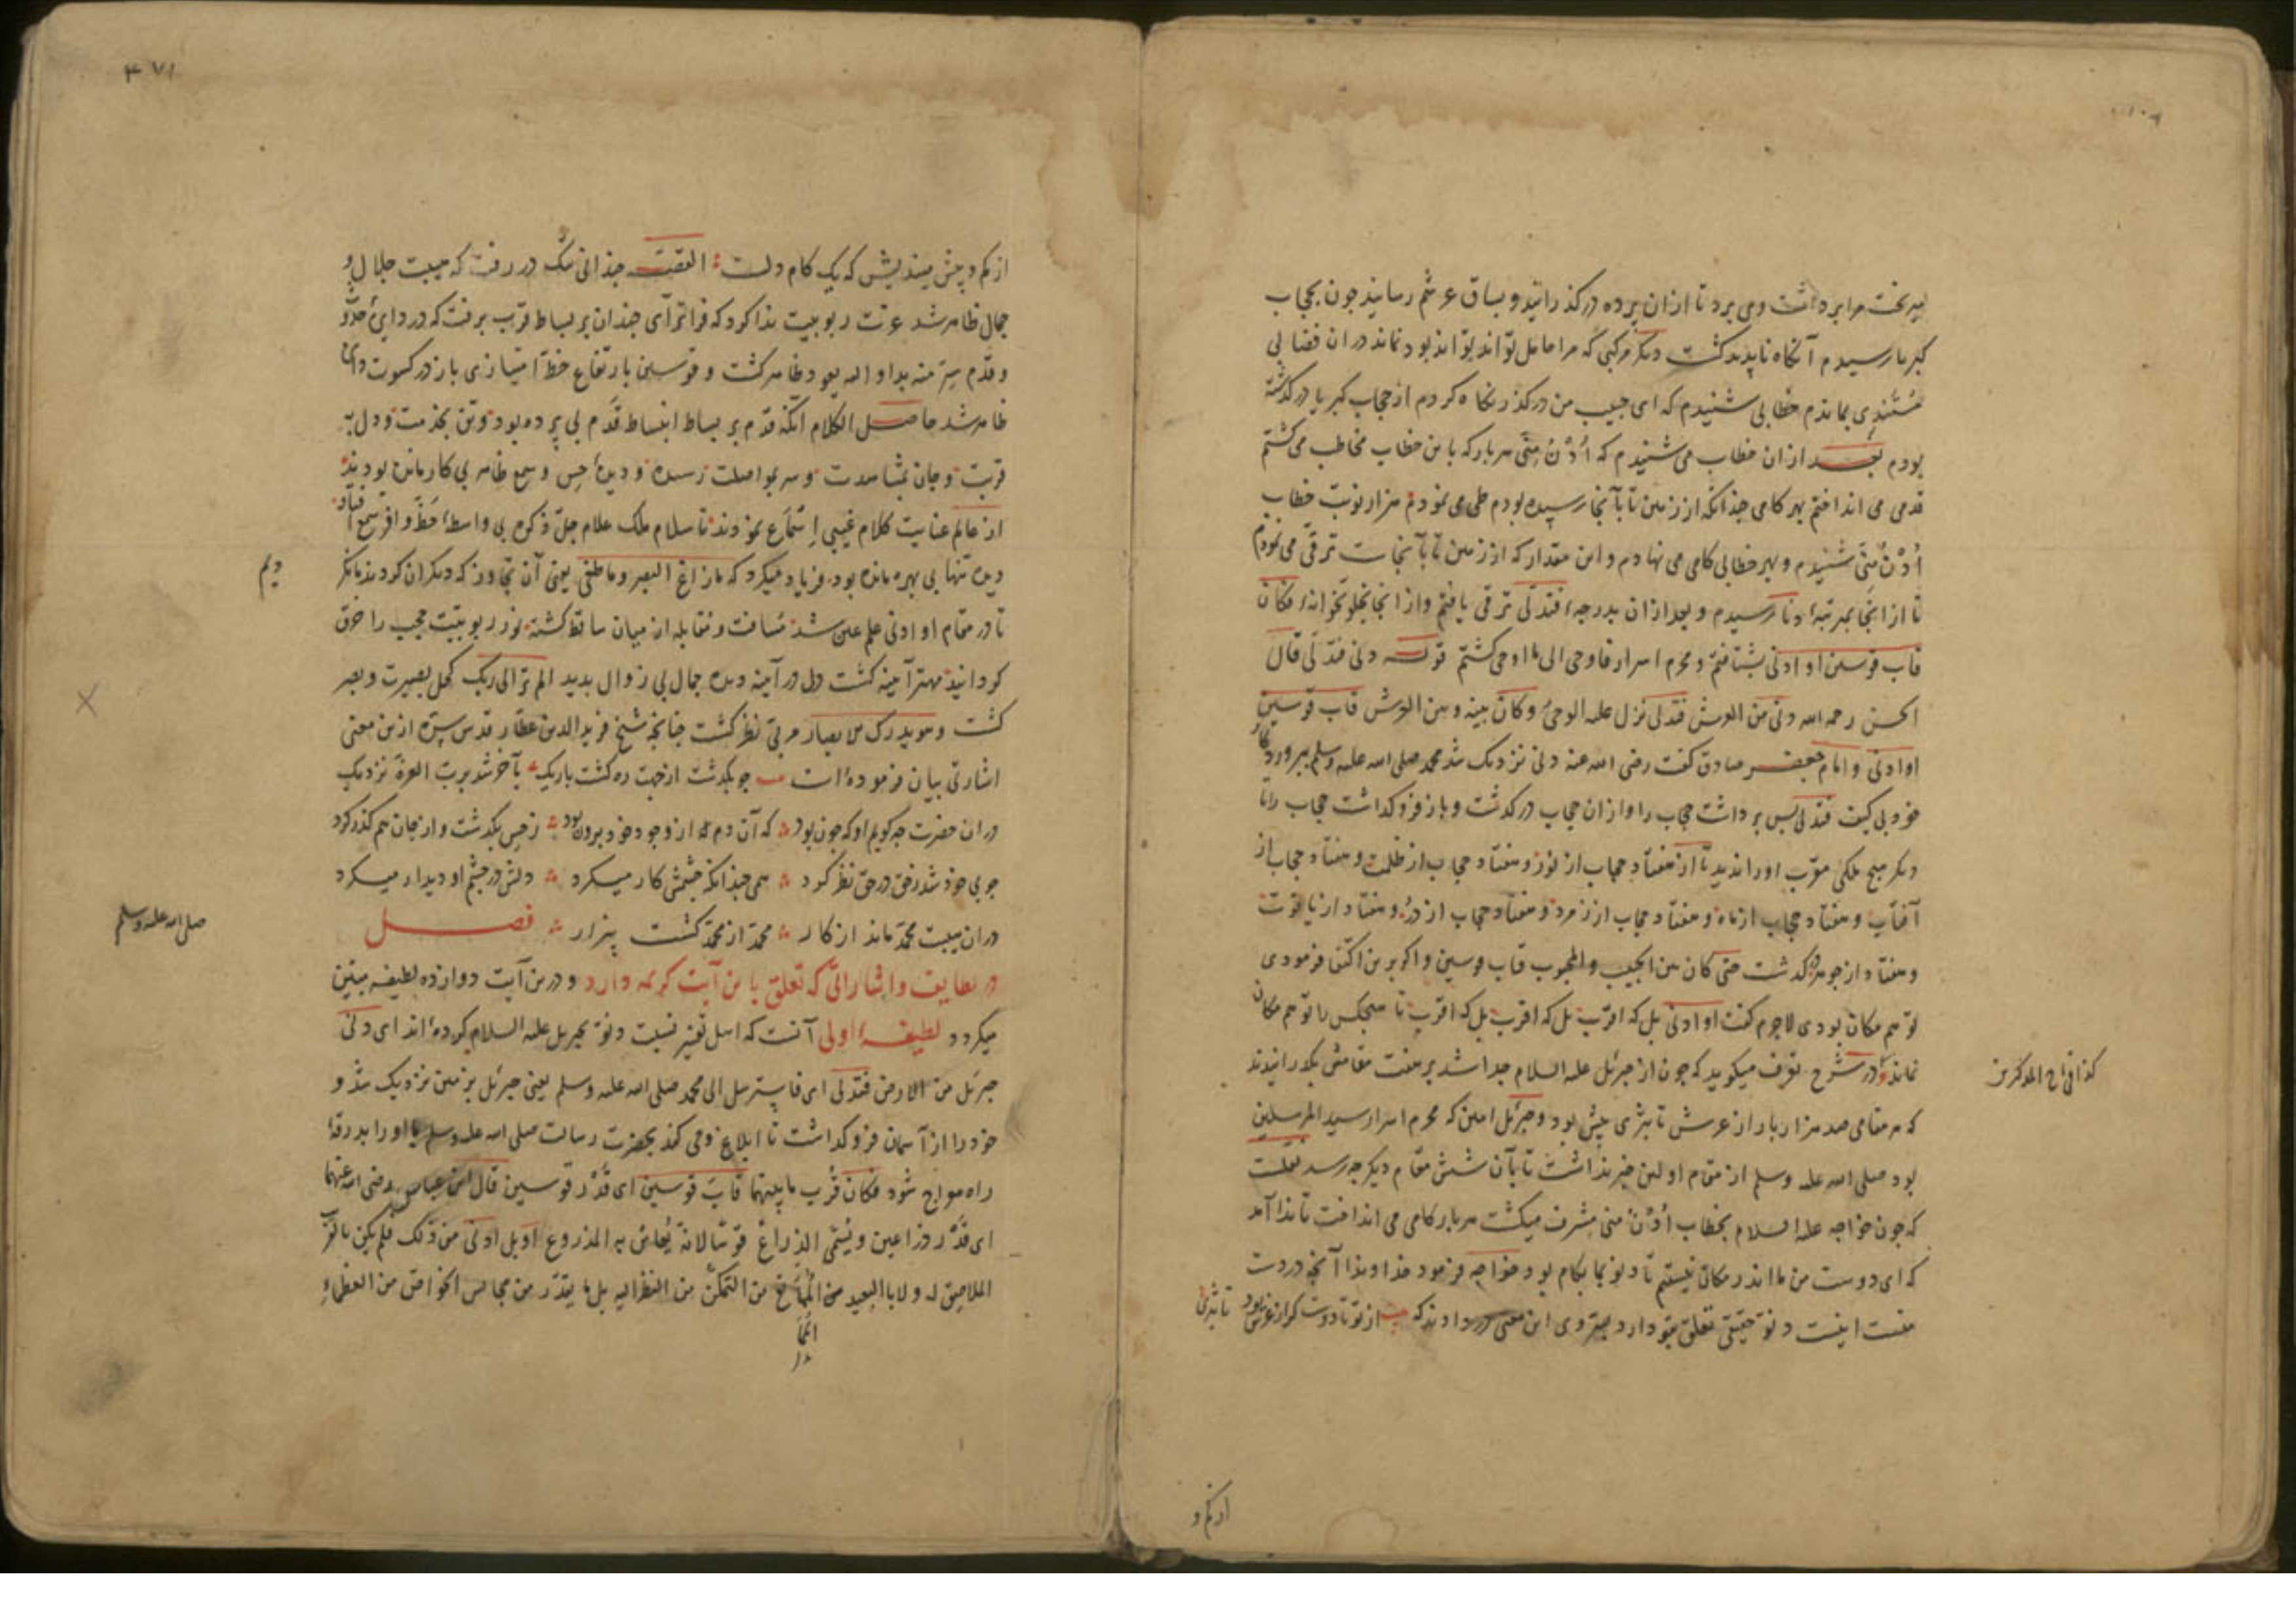 مرا برداشت و می برد تا ازان پرده در کذرانید و بساق عرشم رسانید جون بحجاب
کبریا رسیدم آنکاه ناپدید کشت ودیکر مرکبی که مرا حامل تواند بود نماند دران فضا بی
بماندم خطابی شنیدم که ای حبیب من درکذر نکاه کردم از حجاب کبریا درکذشته
بودم بعد ازان خطاب می شنیدم که اُدْنُ مِنّی هربار که باین خطاب مخاطب می کشتم
قدمی می انداختم بهر کامی جندانکه از زمین تا بآنجا رسیده بودم طی می نمودم هزار نوبت خطاب
اُدْنُ مِنّی شنیدم و بهر خطابی کامی می نهادم و این مقدار که از زمین تا بآنجاست ترقی می نمودم
تا ازانجا بمرتبهٔ دنا رسیدم و بعد ازان بدرجهٔ فتدلی ترقی یافتم و ازانجا بخلوتخوانهٔ فکان
قاب قوسین او ادنی بشتافتم و محرم اسرار فاوحی الی ما اوحی کشتم قوله دنی فتدلی قال
الحسن رحمه الله دنی من العرش فتدلی نزل علیه الوحی وکان بینه وبین العرش قاب قوسین
او ادنی و امام جعفر صادق کفت رضی الله عنه دنی نزدیک شد محمد صلی الله علیه وسلم بپروردکار
خود بی کیف فتدلی پس برداشت حجاب را و ازان حجاب درکذشت و باز فرو کذاشت حجاب را تا
دیکر هیچ ملکی مقرب او را ندید تا از هفتاد حجاب از نور و هفتاد حجاب از ظلمت و هفتاد حجاب از
آفتاب و هفتاد حجاب از ماه و هفتاد حجاب از زمرد و هفتاد حجاب از در و هفتاد از یاقوت
و هفتاد از جوهر درکذشت حتی کان بین الحبیب والمحبوب قاب قوسین و اکر برین اکتفا فرمودی
توهم مکان بودی لاجرم کفت او ادنی بل که اقرب بل که اقرب بل که اقرب تا هیجکس را توهم مکان
نماند و در شرح تعرف میکوید که جون از جبرئیل علیه السلام جدا شد بر هفت مقامش بکذرانیدند
کذا فی تاج المذکرین
که هر مقامی صد هزار بار از عرش تا ثری بیش بود و جبرئیل امین که محرم اسرار سید المرسلین
بود صلی الله علیه وسلم از مقام اولین خبر نداشت تا بآن شش مقام دیکر جه رسد
که جون خواجه علیه السلام بخطاب اُدْنُ منی مشرف میکشت هربار کامی می انداخت تا ندا آمد
که ای دوست من ما اندر مکان نیستیم تا دنو بما بکام بود خواجه فرمود خداوندا آنجه در دست
منست اینست دنو حقیقی تعلق بتو دارد این معنی در دادند که از تو تا دوست کر از عرش بود تا ثری
از کم و
۴۷۱
از کم و بیش میندیش که یک کام دلست القصه جندانی در رفت که هیبت جلال و
جمال ظاهر شد عزت ربوبیت ندا کرد که فراتر آی جندان بر بساط قرب برفت که
ظاهر کشت و قوسین بارتفاع خط امتیازی باز در کسوت
ظاهر شد حاصل الکلام آنکه قدم بر بساط انبساط قدم بی پرده بود و تن بخدمت و دل به
قربت و جان بمشاهدت و سر بمواصلت رسیده و دیدهٔ حس و سمع ظاهر بی کار مانده بودند
از عالم عنایت کلام غیبی استماع نمودند تا سلام ملک علام جل ذکره بی واسطه حظ وافر سمع افتاد
دیده تنها بی بهره مانده بود فریاد میکرد که مازاغ البصر وماطغی یعنی آن تجاوز که دیکران کردند
تا در مقام او ادنی علم عین شد مسافت و مقابله از میان ساقط کشته نور ربوبیت حجب را خرق
کردانید مهتر آینه کشت دل در آینه دیده جمال بی زوال بدید الم تر الی ربک کحل بصیرت و بصر
کشت و هو یدرک الابصار مربی نظر کشت جنانجه شیخ فرید الدین عطار قدس سره ازین معنی
اشارتی بیان فرموده است جو بکذشت از جهت ره کشت باریک بآخر شد برب العزة نزدیک
دران حضرت جه کویم او که جون بود که آن دم او ز وجود خود برون بود ز حس بکذشت و از جان هم کذر کرد
جو بی خود شد ز حق در حق نظر کرد همی جندانکه جشمش کار میکرد دلش در جشم او دیدار میکرد
دران هیبت محمد ماند از کار محمد از محمد کشت بیزار فصل
صلی الله علیه وسلم
در لطایف و اشاراتی که تعلق باین آیت کریمه دارد و درین آیت دوازده لطیفه مبین
میکردد لطیفهٔ اولی آنست که اهل تفسیر نسبت دنو بجبریل علیه السلام کرده اند ای دنی
جبرئیل من الارض فتدلی ای فاسترسل الی محمد صلی الله علیه وسلم یعنی جبرئیل بزمین نزدیک شد و
خود را از آسمان فرو کذاشت تا ابلاغ وحی کند بحضرت رسالت صلی الله علیه وسلم یا او را بدرقهٔ
راه معراج شود فکان قرب ما بینهما قاب قوسین ای قدر قوسین قال ابن عباس رضی الله عنهما
ای قدر ذراعین ویسمی الذراع قوسا لانه یقاس به المذروع او بل ادنی من ذلک فلم یکن بالقرب
الملاصق له ولا بالبعید من التمکن من النظر الیه بل ما یقدر من مجالس الخواص من العظماء